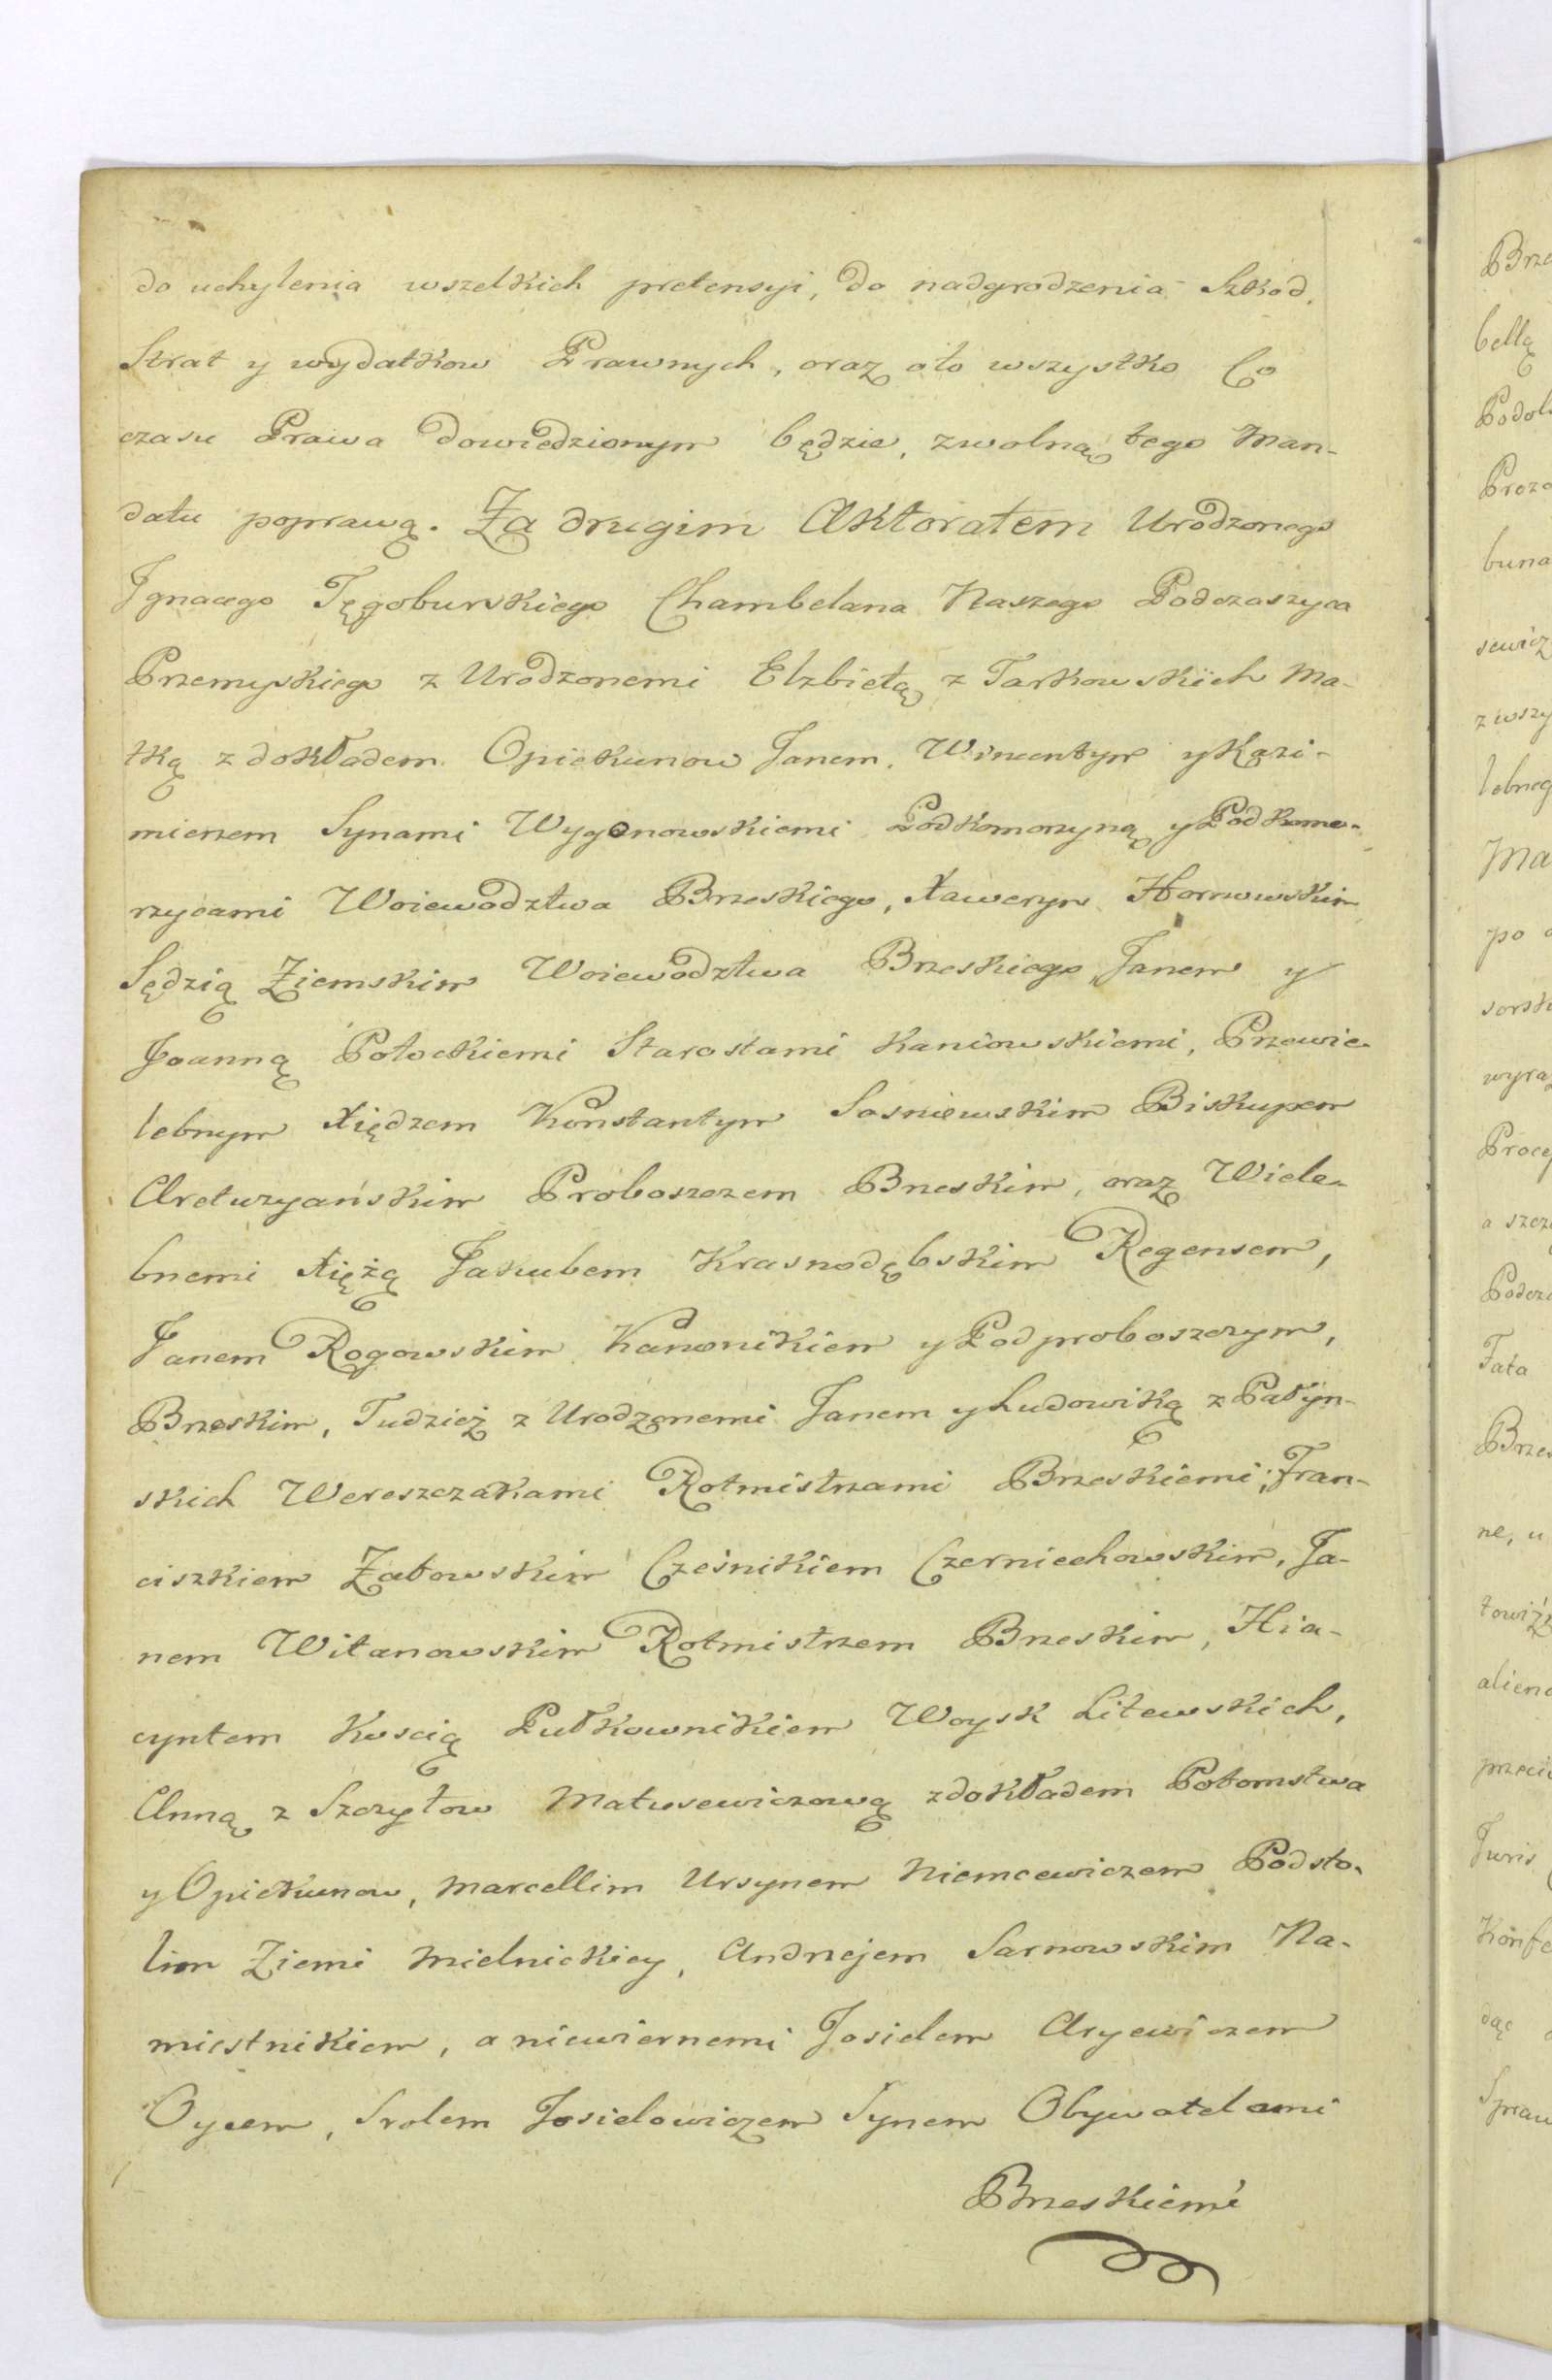 do uchylenia wszelkich pretensyi, do nadgrodzenia Szkod,
Strat y wydatkow Prawnych, oraz oto wszystko Co
czasu Prawa dowiedzionym będzie, zwolną tego Man-
datu poprawą. Za drugim Aktoratem Urodzonego
Ignacego Tęgoburskiego Chambelana Naszego Podczaszyca
Przemyskiego z Urodzonemi Elzbietą z Tarkowskich Ma-
tką z dokładem Opiekunow Janem, Wincentym y Kazi-
mierzem Synami Wygonowskiemi Podkomorzyną y Podkomo-
rzycami Woiewodztwa Brzeskiego, Xawerym Hornowskim
Sędzią Ziemskim Woiewodztwa Brzeskiego, Janem y
Joanną Potockiemi Starostami Kaniowskiemi, Przewie-
lebnym Xiędzem Konstantym Sosniewskim Biskupem
Aretuzyańskim Proboszczem Brzeskim, oraz Wiele-
bnemi Xiężą Jakubem Krasnodębskim Regensem,
Janem Rogowskim Kanonikiem y Podproboszczym,
Brzeskim, Tudzież z Urodzonemi Janem y Ludowiką z Pałyn-
skich Wereszczakami Rotmistrzami Brzeskiemi, Fran-
ciszkiem Załowskim Cześnikiem Czerniechowskim, Ja-
nem Witanowskim Rotmistrzem Brzeskim, Hia-
cyntem Koscią Pułkownikiem Woysk Litewskich,
Anną z Szczytow Matusewiczową z dokładem Potomstwa
y Opiekunow, Marcellim Ursynem Niemcewiczem Podsto-
lim Ziemi Mielnickiey, Andrzejem Sarnowskim Na-
miestnikiem, a niewiernemi Josielem Aryewiczem
Oycem, Srolem Josielowiczem Synem Obywatelami
Brzeskiemi